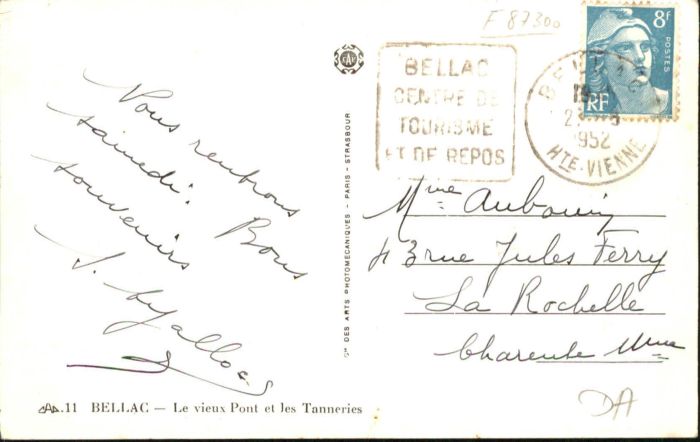 F 87300
8F
POSTES
RF
BELLAC
CENTRE DE
TOURISME
ET DE REPOS
1952
HTE-VIENNE
Vous rentrons
samedi. Bons
souvenirs
Mme Aubouin
43 rue Jules Ferry
La Rochelle
Charente Mme
DA
CIE DES ARTS PHOTOMECANIQUES - PARIS - STRASBOURG
CAP
11 BELLAC — Le vieux Pont et les Tanneries